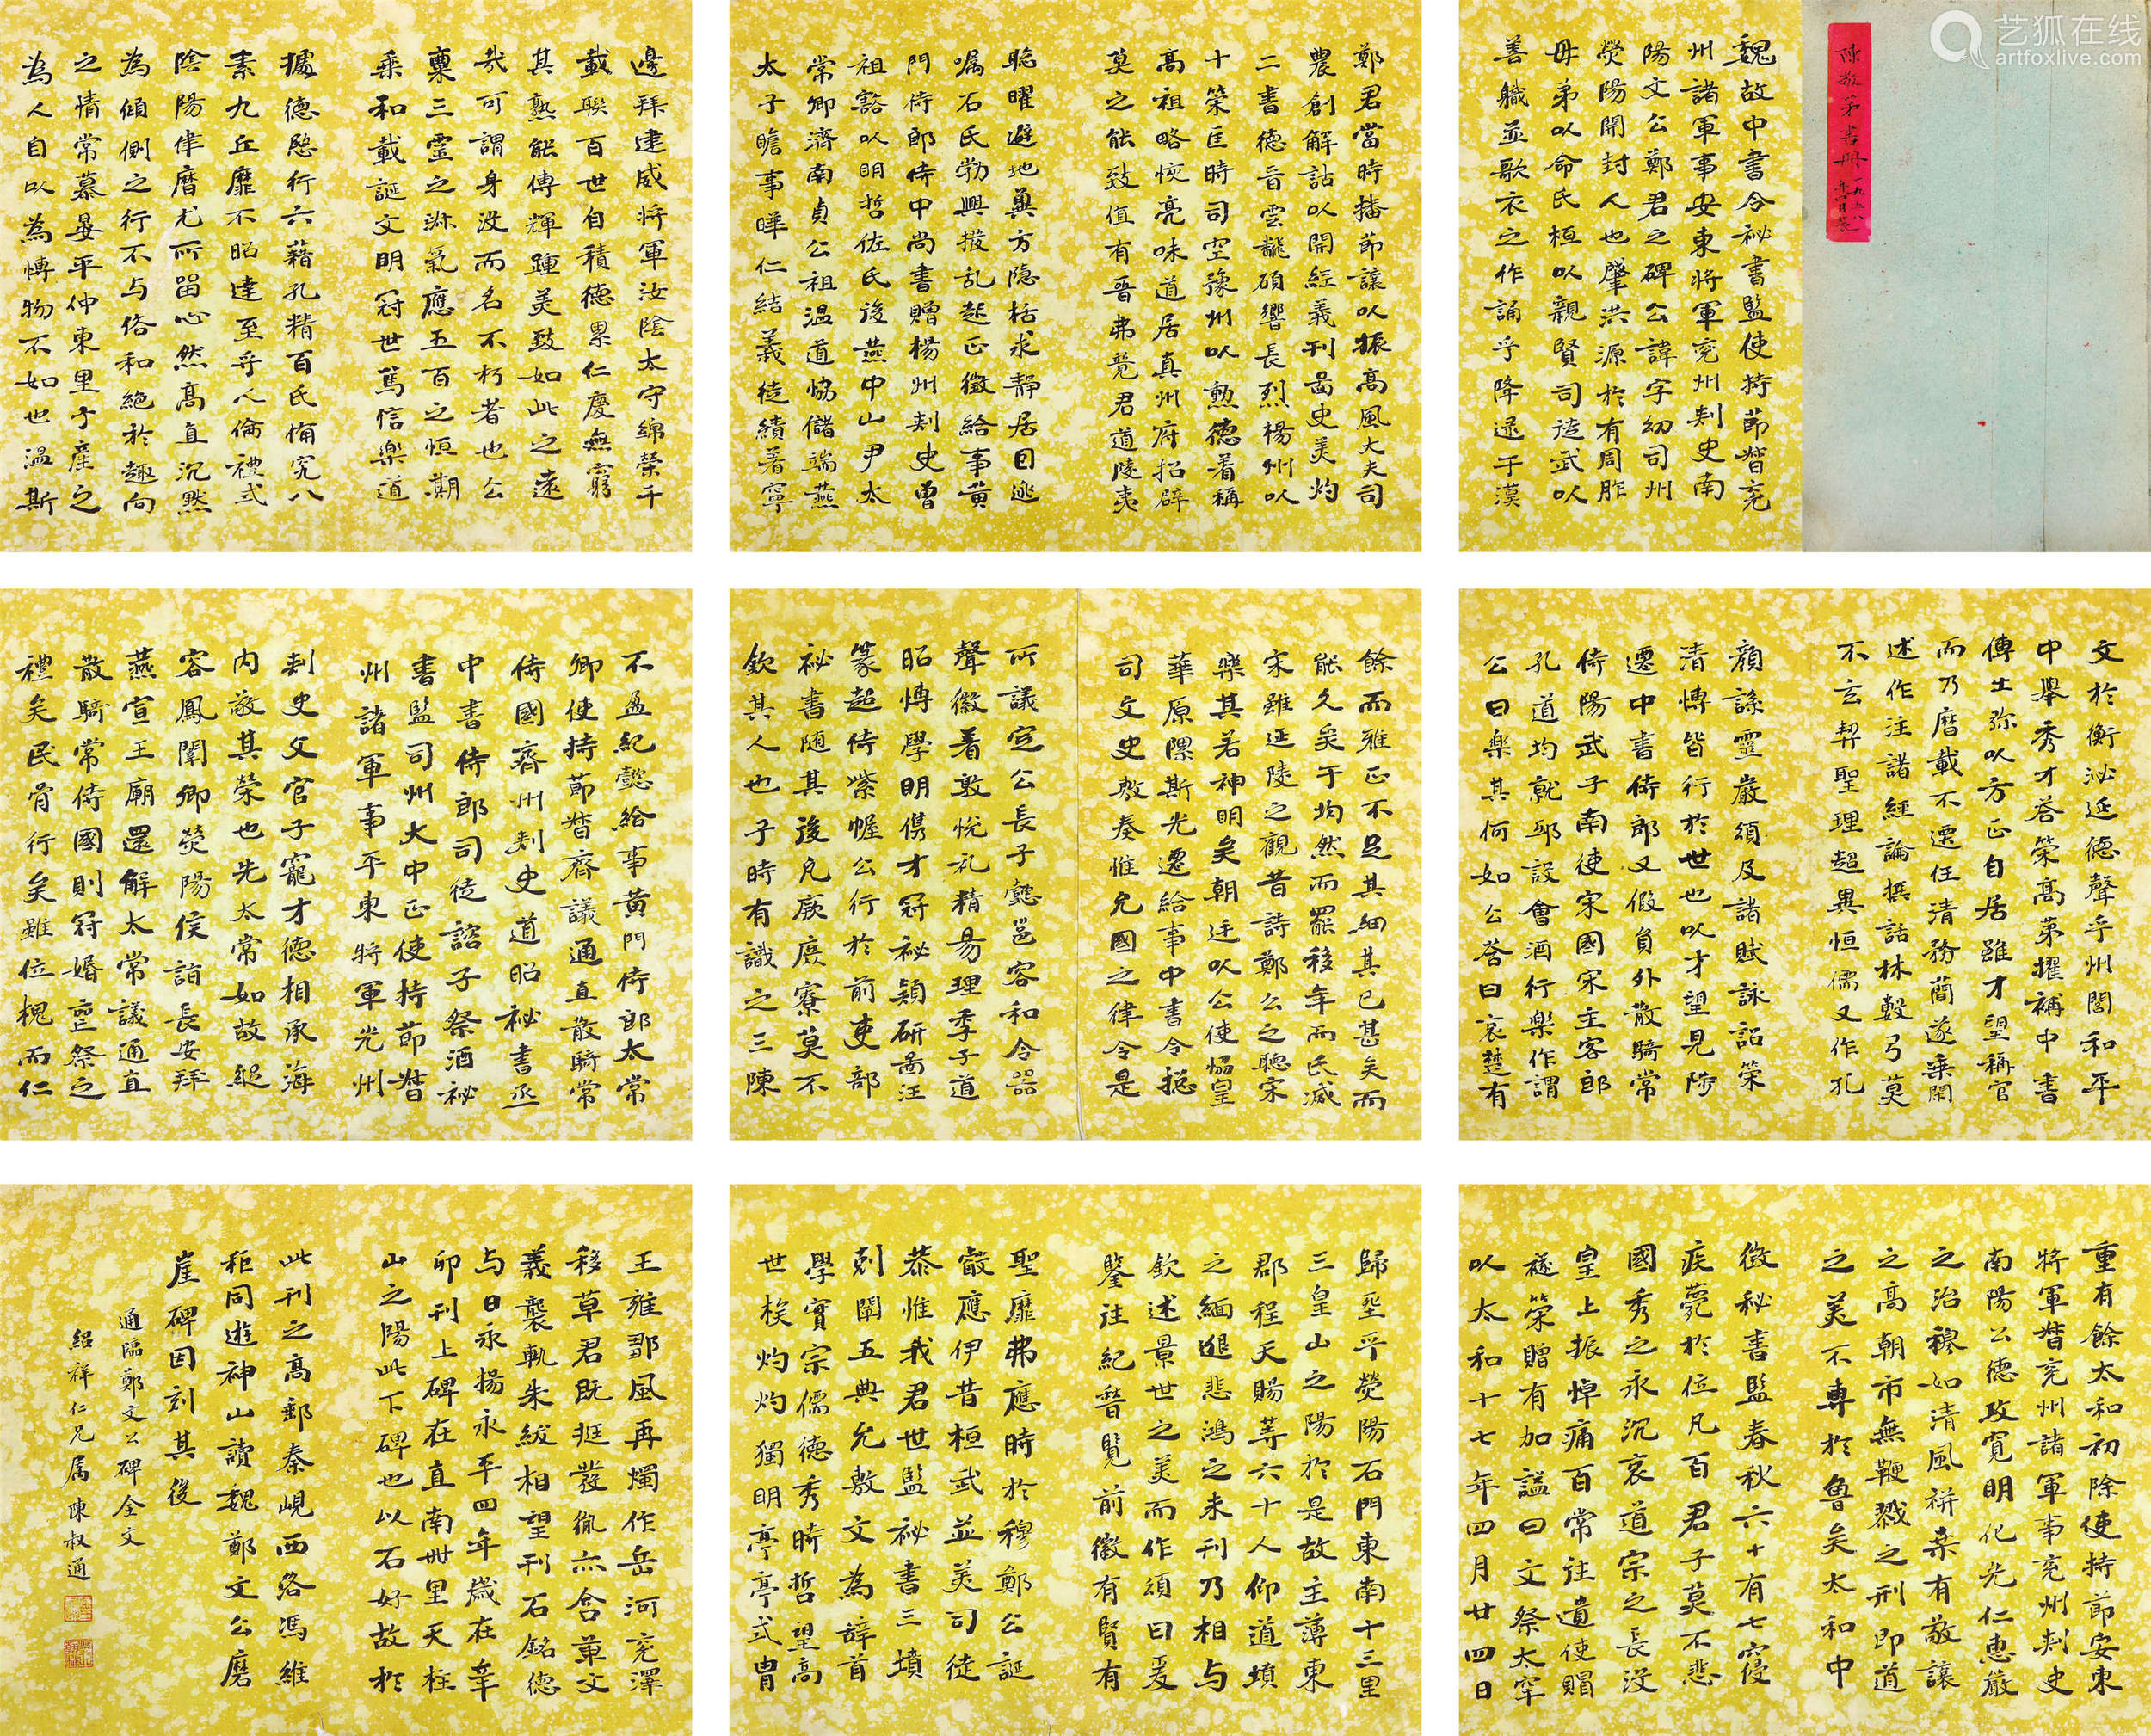 艺狐在线
artfoxlive.com
陳敬第書冊
一九五八
年四月裝
魏故中書令祕書監使持節督兖
州諸軍事安東將軍兖州刾史南
陽文公鄭君之碑公諱字幼司州
熒陽開封人也肇洪源於有周胙
母弟以命氏桓以親賢司徒武以
善軄並歌衣之作誦乎降逮于漢
鄭君當時播節讓以振高風大夫司
農創解詁以開經義刊啚史美灼
二書德音雲翻碩響長烈楊州以
十策匡時司空豫州以勲德着稱
高祖略恢亮味道居真州府招辟
莫之能致值有晉弗竟君道陵夷
聡曜避地冀方隐栝求靜居自逊
嘱石氏勃興撥乱起正徵給事黄
門侍郎侍中尚書贈楊州刾史曾
祖豁以明哲佐氏後燕中山尹太
常卿濟南貞公祖温道恊儲端燕
太子瞻事曄仁結義徒績著寧
邊拜建威将軍汝陰太守綿榮千
載聯百世自積德累仁慶無窮
其熟能傳輝踵美致如此之遠
㢤可謂身沒而名不朽者也公
禀三靈之沵氣應五百之恒期
乗和載誕文明冠世篤信樂道
據德懸行六藉孔精百氏備究八
素九丘靡不昭達至乎人倫禮式
陰陽律曆尤所留心然高直沉黙
為傾側之行不与俗和絶於趣向
之情常慕晏平仲東里子產之
為人自以為博物不如也温斯
文於衡泌延德聲乎州閭和平
中舉秀才荅策高苐擢補中書
傅士弥以方正自居雖才望稱官
而乃厯載不遷任清務蕳遂乗閑
述作注諸經論撰話林數弓莫
不玄契聖理超異恒儒又作孔
顔誄靈巖頌及諸賦詠詔策
清博皆行於世也以才望見陟
遷中書侍郎又假負外散騎常
侍陽武子南使宋國宋主客郎
孔道均就邸設會酒行樂作謂
公曰樂其何如公荅曰哀楚有
餘而雅正不足其細其已甚矣而
能久矣于均然而罷移年而氏滅
宋雖延陵之觀昔詩鄭公之聽宋
樂其若神明矣朝廷以公使恊皇
華原隰斯光遷給事中書令揔
司文史敷奏惟允國之律令是
所議定公長子懿邕容和令器
聲徽着敦悅礼精昜理季子道
昭博學明儁才冠祕穎研啚注
篆超侍紫幄公行於前吏部
祕書随其後凡厥庶寮莫不
欽其人也子時有識之三陳
不盈紀懿給事黄門侍郎太常
卿使持節督齊議通直散騎常
侍國齊州刾史道昭祕書丞
中書侍郎司徒諮子祭酒祕
書監司州大中正使持節督
州諸軍事平東將軍光州
刾史父官子寵才德相承海
内敬其榮也先太常如故縱
容鳳闈卿熒陽侯詣長安拜
燕宣王廟還解太常議通直
散騎常侍國則冠婚䘮祭之
禮矣民胥行矣雖位槐而仁
重有餘太和初除使持節安東
將軍督兖州諸軍事兖州刾史
南陽公德攻寛明化先仁惠嚴
之治穆如清風耕桒有敬讓
之高朝市無鞭戮之刑即道
之美不専於魯矣太和中
徴秘書監春秋六十有七寑
疾薨於位凡百君子莫不悲
國秀之永沉哀道宗之長没
皇上振悼痛百常往遺使賵
襚策贈有加謚曰文祭太牢
以太和十七年四月廿四日
歸垩乎熒陽石門東南十三里
三皇山之陽於是故主薄東
郡程天賜等六十人仰道墳
之緬邈悲鴻之未刊乃相与
欽述景世之美而作頌曰爰
鑒往紀瞀覽前徽有賢有
聖靡弗應時於穆鄭公誕
叡應伊昔桓武並美司徒
恭惟我君世監祕書三墳
剋闡五典允敷文為辞首
學實宗儒德秀時哲望高
世族灼灼獨明亭亭式胄
王雍鄁風再燭作岳河兖澤
移草君既挺發胤六合革文
義襲軌朱紱相望刊石銘德
与日永揚永平四年嵗在辛
卯刊上碑在直南卌里天柱
山之陽此下碑也以石好故於
此刊之高郵秦峴西谷馮維
秬同遊神山讀魏鄭文公磨
崖碑因刻其後
通臨鄭文公碑全文
紹祥仁兄属陳叔通